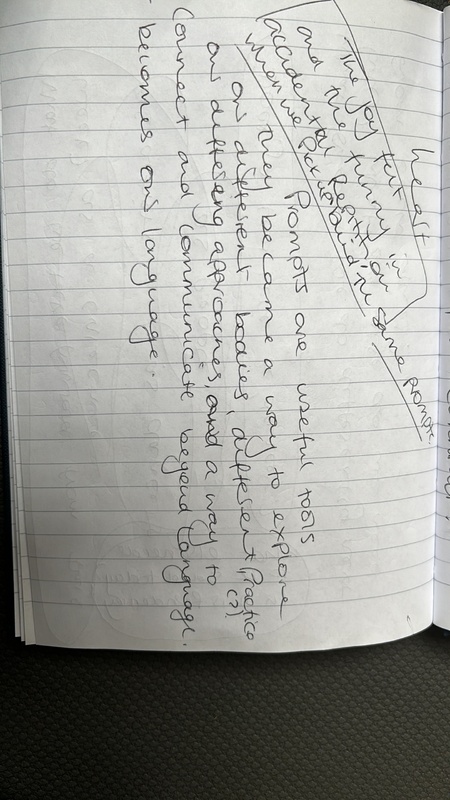 The joy felt
and the funny in
accidental
when we pick up the same prompt
Prompts are useful tools
they became a way to explore
our different bodies, different Practice
(?)
our differeng approaches, and a way to
connect and communicate beyond language.
becomes our language.